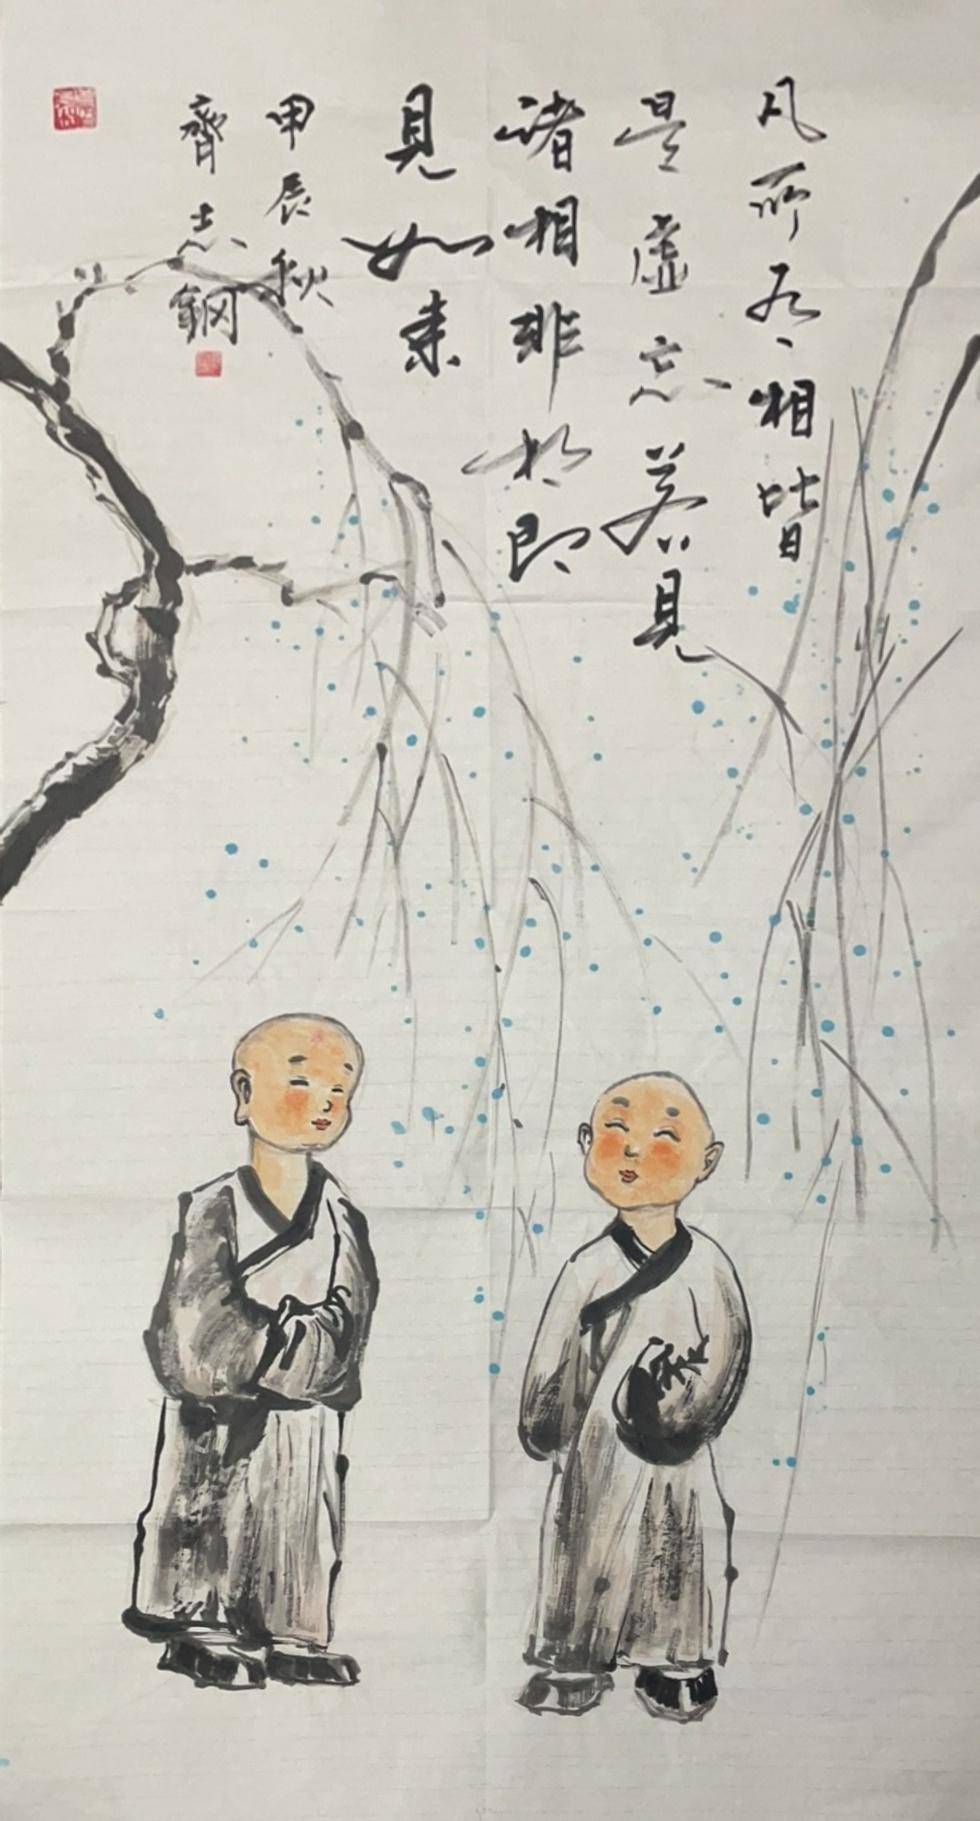 凡所有相皆
是虚忘若見
諸相非相即
見如来
甲辰秋
齊志鋼